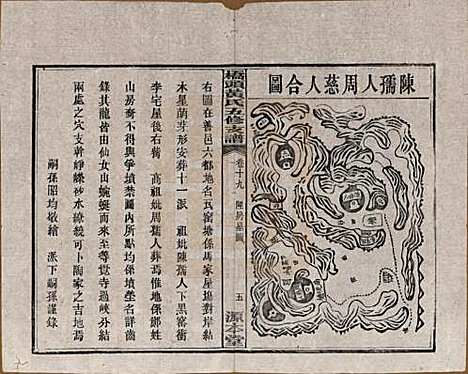 陳孺人周慈人合圖
橋頭黄氏五修支譜
卷十九
五
源本堂
右圖在善邑六都地名瓦窑塘係馬家屋塲對岸結
木星萌芽形安葬十一派 祖妣陳孺人下黑窑衝
李宅屋後右萵 高祖妣周慈人葬焉惟地係鄭姓
山房裔不得與争墳禁內所點均係墳塋名詳齒
錄其龍皆由仙女山蜿蜒而來至尊覺寺過峽分結
兩處之穴支幹崢嶸砂水綠繞可卜陶家之吉地焉
嗣孫昭均敬繪 派下嗣孫謹錄